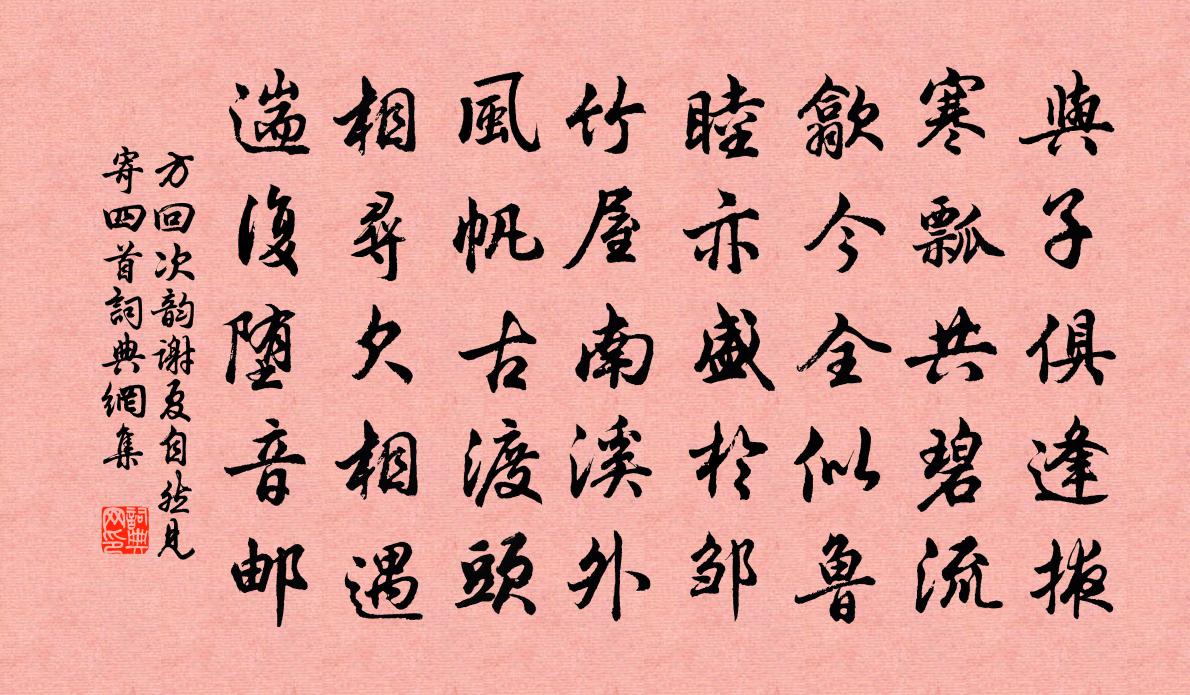 與子俱逢掖
寒瓢共碧流
歙今全似鲁
睦亦盛於邹
竹屋南溪外
風帆古渡頭
相尋久相遇
遄復堕音邮
方回次韵谢夏自然見
寄四首詞典網集
詞典网印